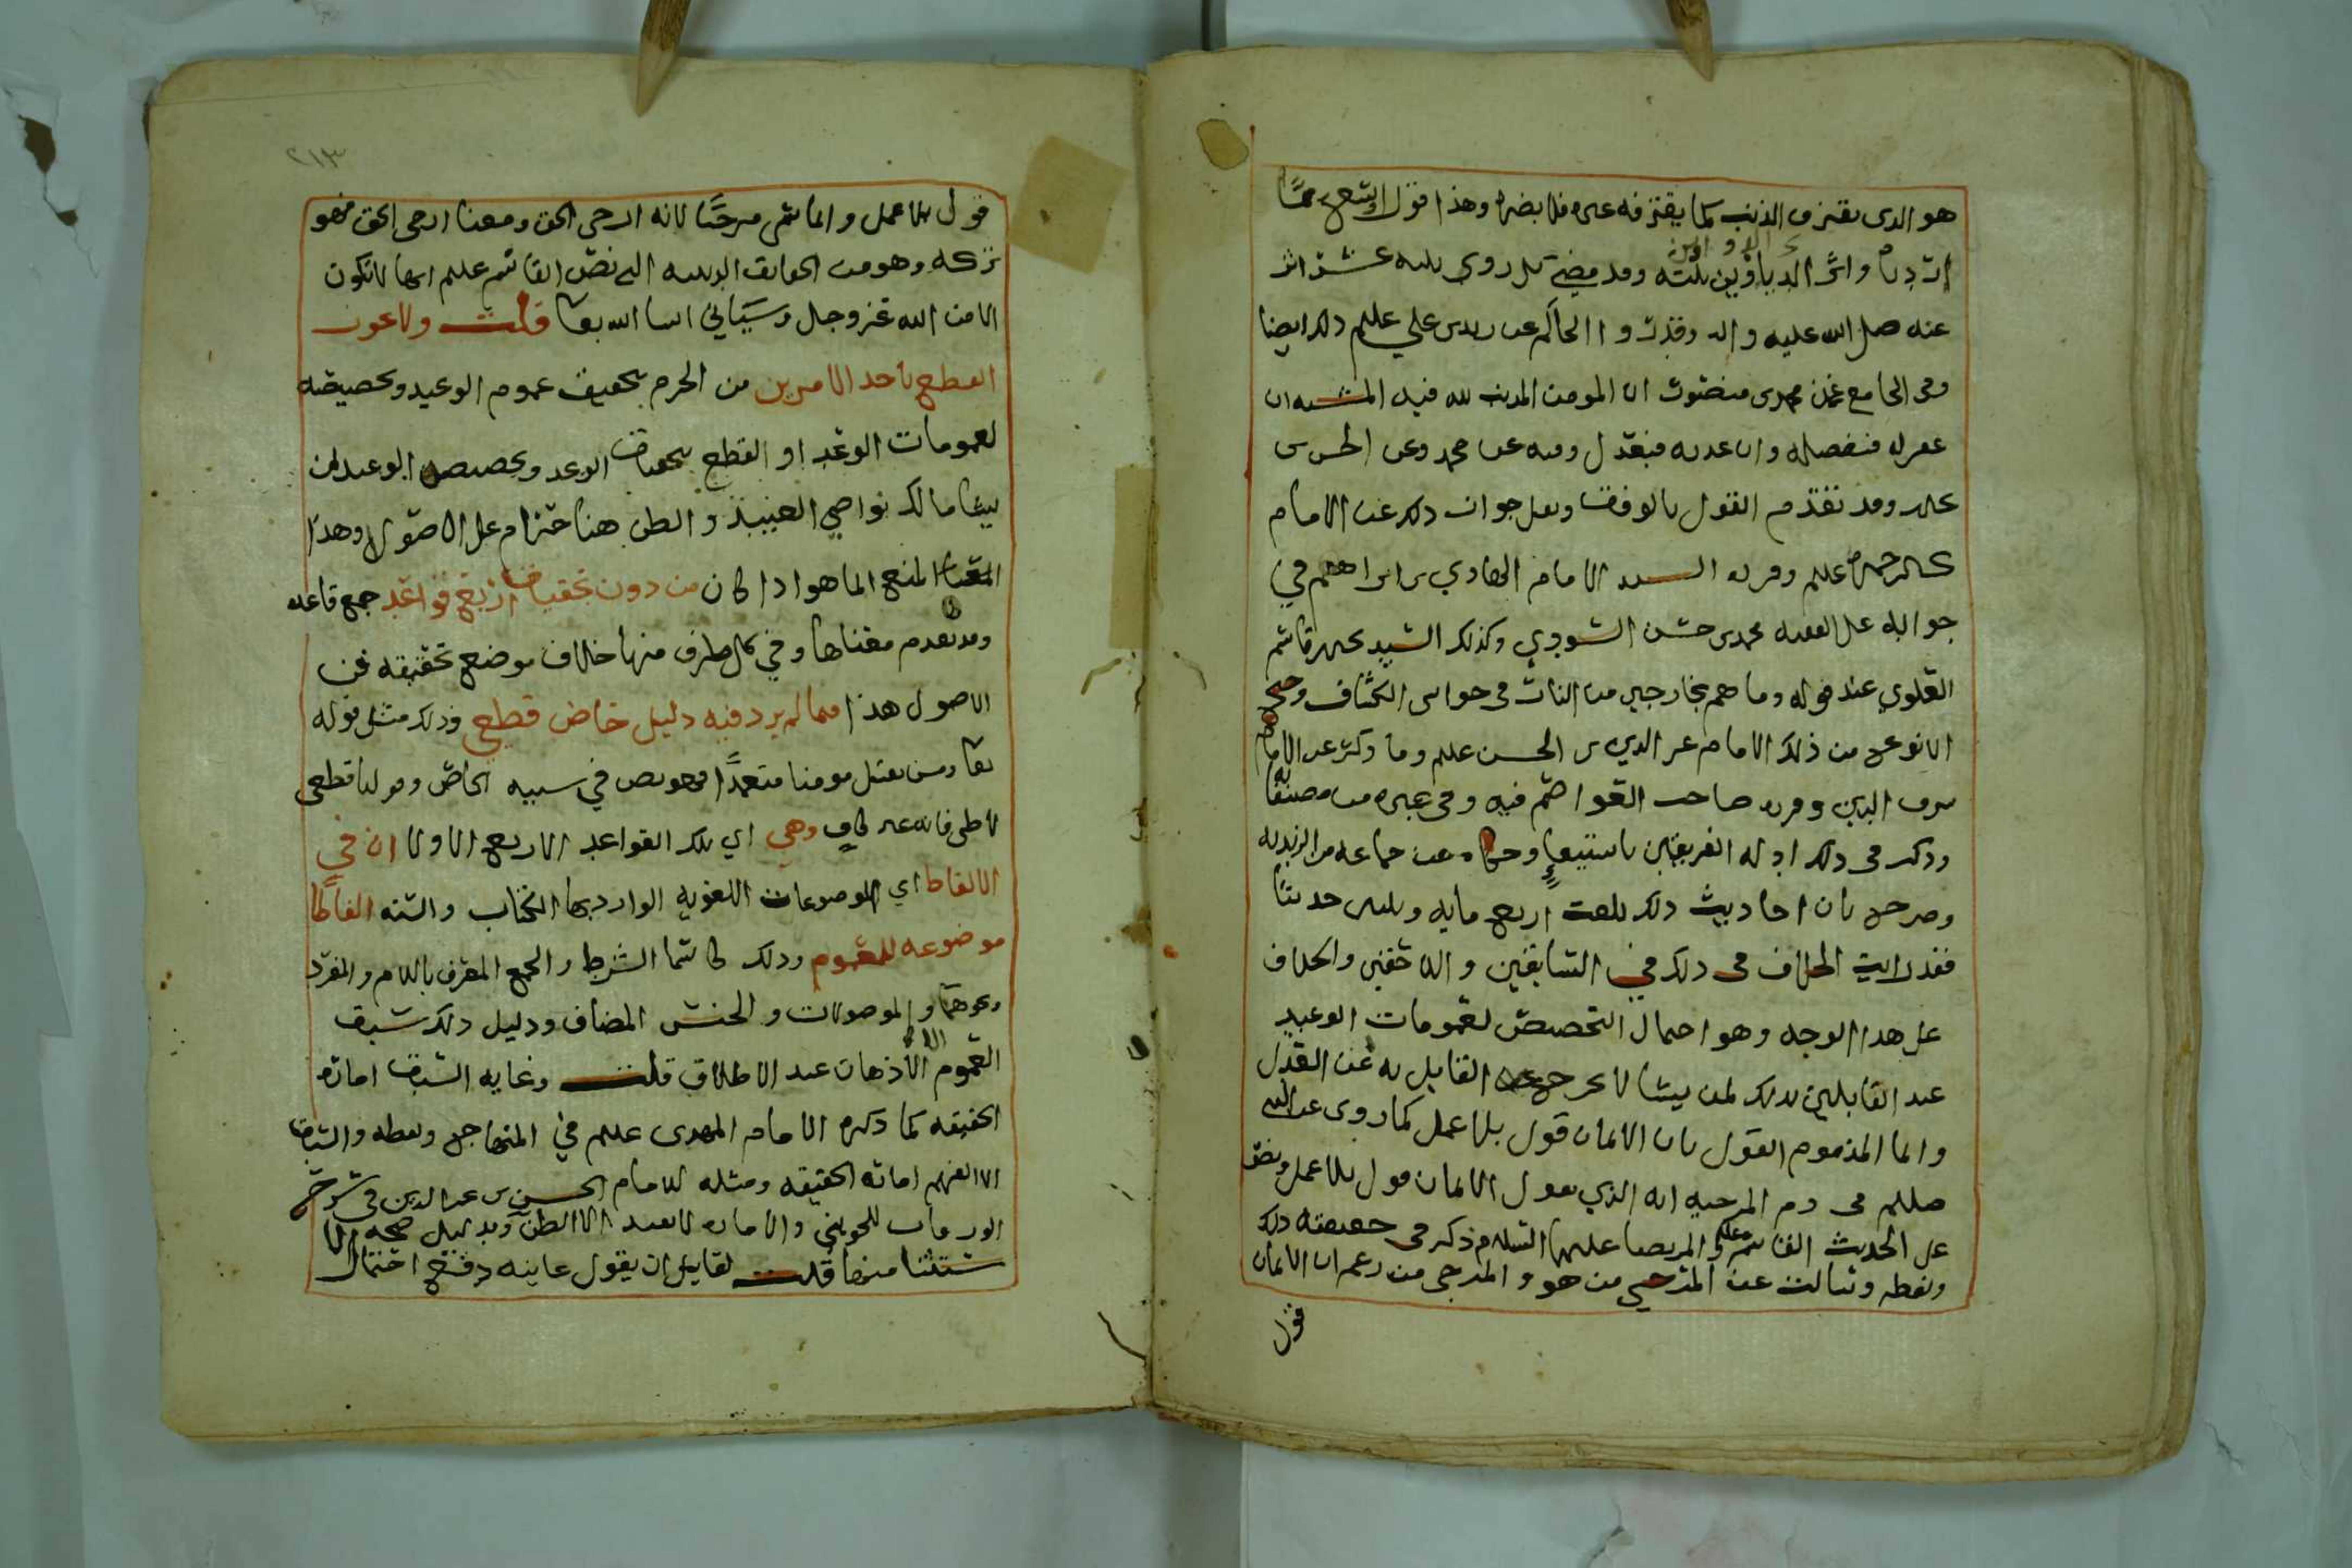 هو الدى يقترف الذنب كما يقترفه غيره فلا يضره وهذا قول
ان الدواوين ثلثه وقد مضى بل روى ثلثه عشر اثر
عنه صلى الله عليه واله وقد روا الحاكم عن زيد بن علي عليلم ذلك ايضا
وفى الجامع عن محمد بن منصور ان المومن المذنب لله فيه المشيه ان
غفر له فبفضله وان عذبه فبعدل وفيه عن محمد وعن الحسن بن
وقد تقدم القول بالوقف ونقل جواز ذلك عن الامام
عليلم وقرره السيد الامام الهادي بن ابراهيم في
جوابه على الفقيه محمد بن حسن السودي وكذلك السيد قاسم
العلوي عند قوله وما هم بخارجين من النار فى حواشي الكشاف
الانوع من ذلك الامام عز الدين بن الحسن عليلم وما ذكر عن الامام
شرف الدين وقرره صاحب العواصم فيه وفى غيره من مصنفاته
وذكر فى ذلك ادله الفريقين باستيعاب وحكاه عن جماعه من الزيديه
وصرح بان احاديث ذلك بلغت اربع مايه وثلثين حديثا
فقد رايت الخلاف فى ذلك في السابقين والاحقين والخلاف
على هذا الوجه وهو احتمال التخصيص لعمومات الوعيد
عند القايلين بذلك لمن يشا لا يخرج القايل به عن العدل
وانما المذموم القول بان الايمان قول بلا عمل كما روى عن النبي
صللم فى ذم المرجيه انه الذي يقول الايمان قول بلا عمل ونص
على الحديث القاسم والمرتضا عليهما السلام ذكر فى حقيقته ذلك
ولفظه وسالت عن المرجي من هو والمرجى من زعم ان الايمان
قول
٢١٣
قول بلا عمل وانما سمى مرجيا لانه ارجى الحق ومعنا ارجى الحق فهو
تركه وهو من الحقايق الدينيه التى نص القاسم عليلم انها لا تكون
الا من الله عز وجل وسياتي ان شا الله تعا قلت ولا يجوز
القطع باحد الامرين من الجزم بتحقيق عموم الوعيد وتخصيصه
لعمومات الوعد او القطع بتحقيق الوعد وتخصيص الوعيد لمن
يشا مالك نواصي العبيد والظن هنا حرام على الاصول وهذا
المنع انما هو اذا كان من دون تحقيق اربع قواعد جمع قاعده
وقد تقدم معناها وفي كل طرف منها خلاف موضع تحقيقه فن
الاصول هذا فيما لم يرد فيه دليل خاص قطعي وذلك مثل قوله
تعا ومن يقتل مومنا متعمدا فهو نص في سببه الخاص وقولنا قطعي
لا ظنى فانه غير كاف وهي اي تلك القواعد الاربع الاولا ان في
الالفاظ اي الموضوعات اللغويه الوارد بها الكتاب والسنه الفاظا
موضوعه للعموم وذلك كاسما الشرط والجمع المعرف باللام والمفرد
ونحوهما والموصولات والجنس المضاف ودليل ذلك سبق
العموم الى الاذهان عند الاطلاق قلت وغايه السبق اماره
الحقيقه كما ذكره الامام المهدى عليلم في المنهاج ولفظه والسبق
الا الفهم اماره الحقيقه ومثله للامام الحسن بن عز الدين فى شرح
الورقات للجويني والاماره لا تفيد الا الظن وبدليل صحه الا
ستثنا منها قلت لقايل ان يقول غايته دفع احتمال